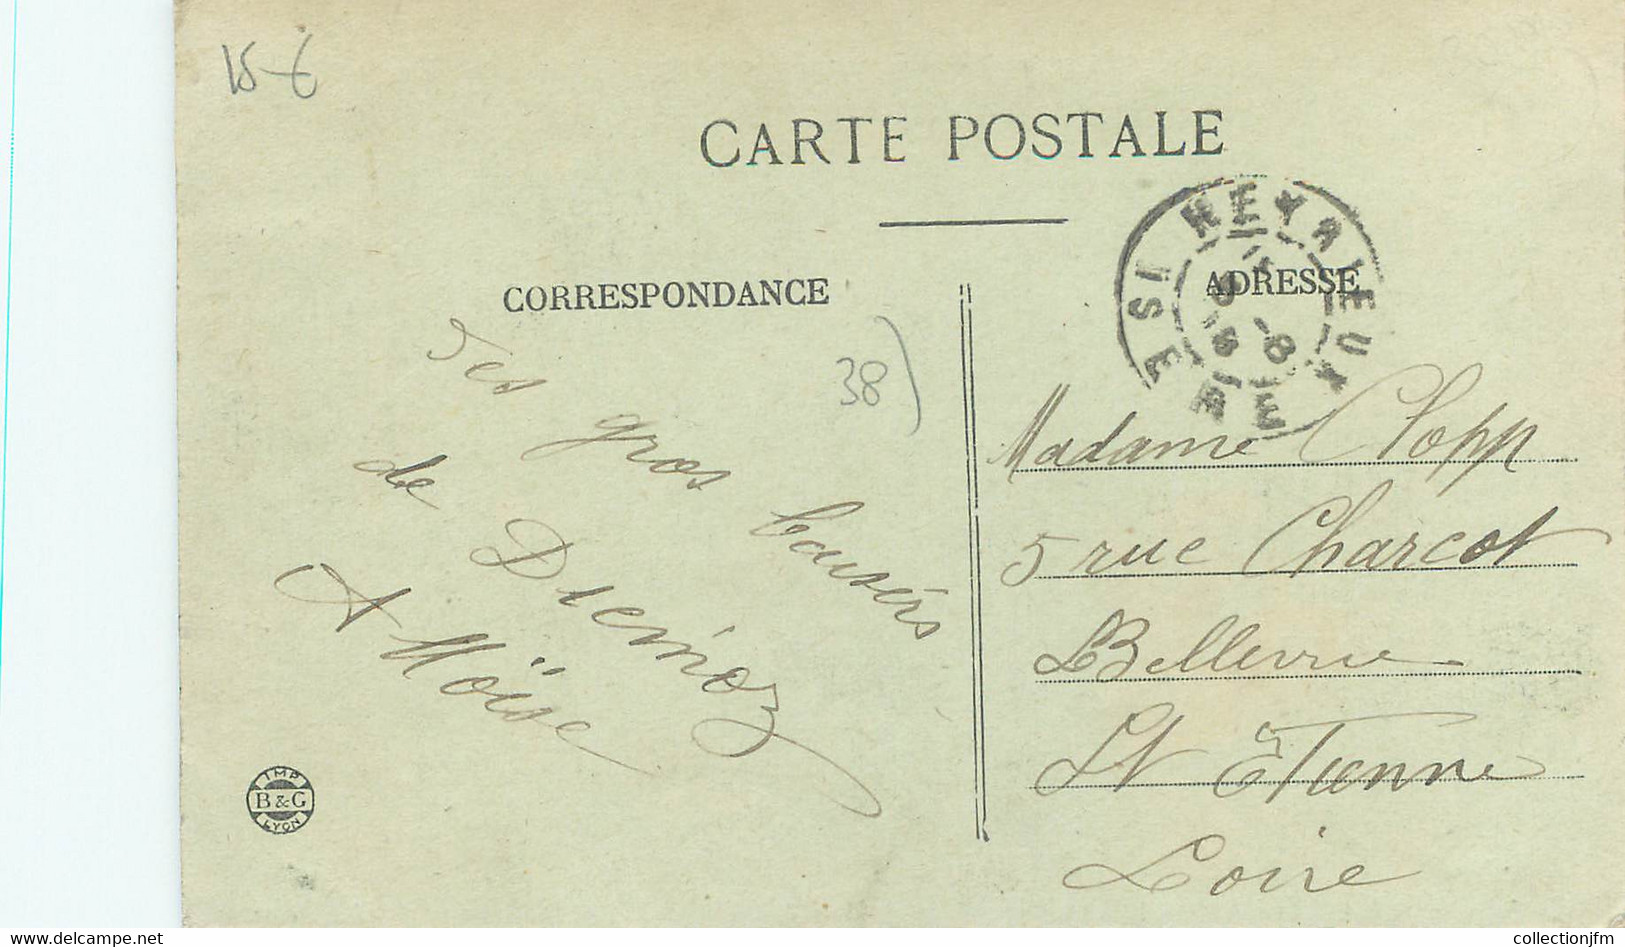 15 €
CARTE POSTALE
HEYRIEUX
ISERE
CORRESPONDANCE
ADRESSE
38)
5 es gros baisers
de Diemoz
A Moïse
Madame Clopp
5 rue Charcot
Bellevue
St Etienne
Loire
IMP
B & G
LYON
www.delcampe.net
collectionjfm